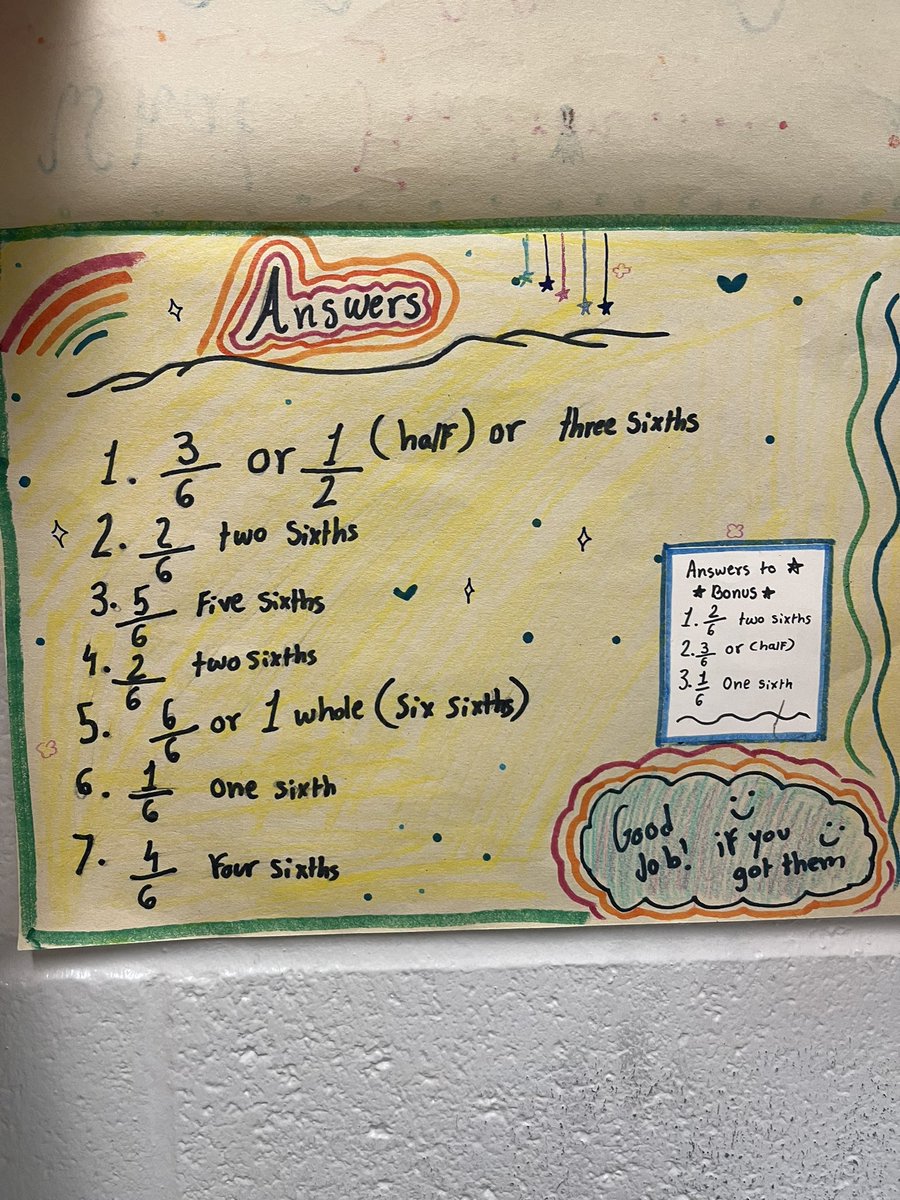 Answers
1. 3/6 or 1/2 (half) or three sixths
2. 2/6 two sixths
3. 5/6 Five sixths
4. 2/6 two sixths
5. 6/6 or 1 whole (six sixths)
6. 1/6 one sixth
7. 4/6 Four sixths
Answers to
Bonus
1. 2/6 two sixths
2. 3/6 or (half)
3. 1/6 One sixth
Good
Job! if you
got them